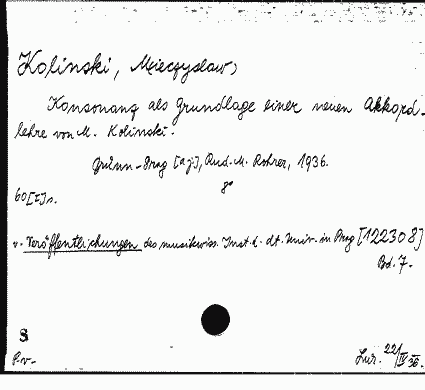 Kolinski, Mieczysław
Konsonanz als Grundlage einer neuen Akkord-
lehre von M. Kolinski.
Brünn-Prag [a j.], Rud. M. Rohrer, 1936.
8°
60 [I] s.
v. Veröffentlichungen des musikwiss. Inst. d. dt. Univ. in Prag [122308]
Bd. 7.
S
P.v.
22/IV 36.